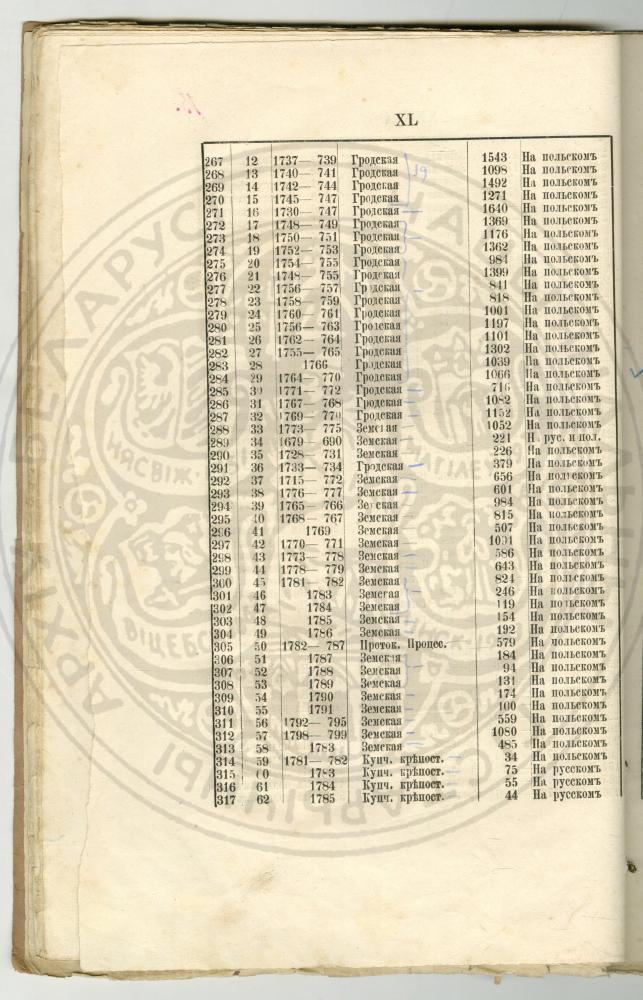 XL
267 12 1737— 739 Гродская 1543 На польскомъ
268 13 1740— 741 Гродская 1098 На польскомъ
269 14 1742— 744 Гродская 1492 На польскомъ
270 15 1745— 747 Гродская 1271 На польскомъ
271 16 1730— 747 Гродская 1640 На польскомъ
272 17 1748— 749 Гродская 1369 На польскомъ
273 18 1750— 751 Гродская 1176 На польскомъ
274 19 1752— 753 Гродская 1362 На польскомъ
275 20 1754— 755 Гродская 984 На польскомъ
276 21 1748— 755 Гродская 1399 На польскомъ
277 22 1756— 757 Гродская 841 На польскомъ
278 23 1758— 759 Гродская 818 На польскомъ
279 24 1760— 761 Гродская 1001 На польскомъ
280 25 1756— 763 Гродская 1197 На польскомъ
281 26 1762— 764 Гродская 1101 На польскомъ
282 27 1755— 765 Гродская 1302 На польскомъ
283 28 1766 Гродская 1039 На польскомъ
284 29 1764— 770 Гродская 1066 На польскомъ
285 30 1771— 772 Гродская 716 На польскомъ
286 31 1767— 768 Гродская 1082 На польскомъ
287 32 1769— 770 Гродская 1152 На польскомъ
288 33 1773— 775 Земская 1052 На польскомъ
289 34 1679— 690 Земская 221 Н. рус. и пол.
290 35 1728— 731 Земская 226 На польскомъ
291 36 1733— 734 Гродская 379 На польскомъ
292 37 1715— 772 Земская 656 На польскомъ
293 38 1776— 777 Земская 601 На польскомъ
294 39 1765— 766 Земская 984 На польскомъ
295 40 1768— 767 Земская 815 На польскомъ
296 41 1769 Земская 507 На польскомъ
297 42 1770— 771 Земская 1091 На польскомъ
298 43 1773— 778 Земская 586 На польскомъ
299 44 1778— 779 Земская 643 На польскомъ
300 45 1781— 782 Земская 824 На польскомъ
301 46 1783 Земская 246 На польскомъ
302 47 1784 Земская 119 На польскомъ
303 48 1785 Земская 154 На польскомъ
304 49 1786 Земская 192 На польскомъ
305 50 1782— 787 Проток. Процес. 579 На польскомъ
306 51 1787 Земская 184 На польскомъ
307 52 1788 Земская 94 На польскомъ
308 53 1789 Земская 131 На польскомъ
309 54 1790 Земская 174 На польскомъ
310 55 1791 Земская 100 На польскомъ
311 56 1792— 795 Земская 559 На польскомъ
312 57 1798— 799 Земская 1080 На польскомъ
313 58 1783 Земская 485 На польскомъ
314 59 1781— 782 Купч. крѣпост. 34 На польскомъ
315 60 1783 Купч. крѣпост. 75 На русскомъ
316 61 1784 Купч. крѣпост. 55 На русскомъ
317 62 1785 Купч. крѣпост. 44 На русскомъ